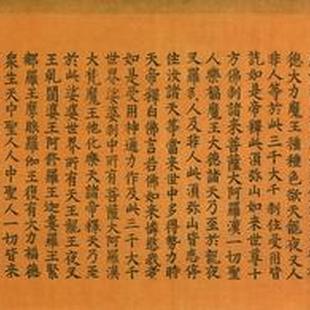 德大力魔王種種色欲天龍夜又人
非人等於此三千大千剎住受用皆
說如是帝釋此須弥山如來世尊十
方佛剎諸來菩薩大阿羅漢一切聖
人樂福魔王大德諸天乃至於龍夜
又羅剎人及非人此須弥山皆悉停
住汝諸天等當來世中多得勢力時
天帝釋白佛言若佛如來憐愍我者
如是受用神通力作及此三千大千
世界娑婆剎中所有菩薩大阿羅漢
大龍魔王他化樂天諸帝釋天乃至
於此娑婆世界所有天王龍王夜又
王乾闥婆王阿脩羅王迦婁羅王緊
那羅王摩睺羅伽王復有大力福德
衆生天中聖人人中聖人一切皆來